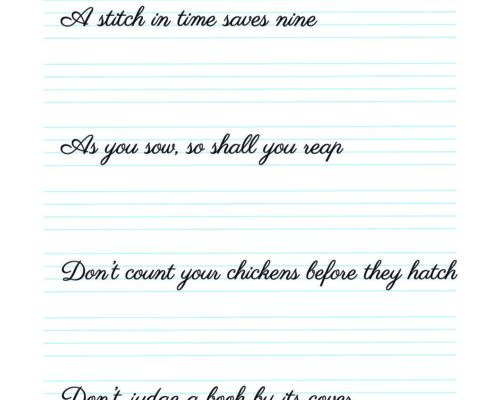 A stitch in time saves nine
As you sow, so shall you reap
Don't count your chickens before they hatch
Don't judge a book by its cover